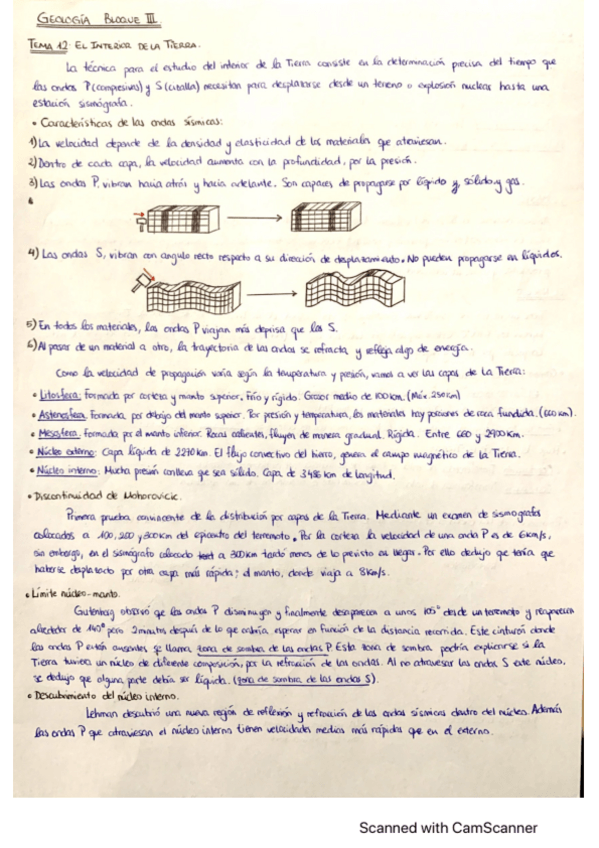 GEOLOGÍA BLOQUE III.
TEMA 12: EL INTERIOR DE LA TIERRA.
La técnica para el estudio del interior de la Tierra consiste en la determinación precisa del tiempo que
las ondas P (compresivas) y S (cizalla) necesitan para desplazarse desde un terreno o explosión nuclear hasta una
estación sismógrafa.
• Características de las ondas sísmicas:
1) La velocidad depende de la densidad y elasticidad de los materiales que atraviesan.
2) Dentro de cada capa, la velocidad aumenta con la profundidad, por la presión.
3) Las ondas P, vibran hacia atrás y hacia adelante. Son capaces de propagarse por líquido y, sólido y gas.
4) Las ondas S, vibran con angulo recto respecto a su dirección de desplazamiento. No pueden propagarse en líquidos.
5) En todos los materiales, las ondas P viajan más deprisa que las S.
6) Al pasar de un material a otro, la trayectoria de las ondas se refracta y refleja algo de energía.
Como la velocidad de propagación varía según la temperatura y presión, vamos a ver las capas de la Tierra:
• Litosfera: Formada por corteza y manto superior. Frío y rígido. Grosor medio de 100 km. (Máx. 250 km)
• Astenosfera: Formada, por debajo del manto superior. Por presión y temperatura, los materiales hay porciones de roca fundida. (660 km).
• Mesosfera: Formada por el manto inferior. Rocas calientes, fluyen de manera gradual. Rígida. Entre 660 y 2900 km.
• Núcleo externo: Capa líquida de 2270 km. El flujo convectivo del hierro, genera el campo magnético de la Tierra.
• Núcleo interno: Mucha presión conlleva que sea sólido. Capa de 3486 km de longitud.
• Discontinuidad de Mohorovicic.
Primera prueba convincente de la distribución por capas de la Tierra. Mediante un examen de sismógrafos
colocados a 100, 200 y 300 km del epicentro del terremoto. Por la corteza la velocidad de una onda P es de 6 km/s,
sin embargo, en el sismógrafo colocado a 300 km tardó menos de lo previsto en llegar. Por ello dedujo que tenía que
haberse desplazado por otra capa más rápida; el manto, donde viaja a 8 km/s.
• Límite núcleo-manto.
Gutenberg observó que las ondas P disminuyen y finalmente desaparecen a unos 105° desde un terremoto y reaparecen
alrededor de 140° pero 2 minutos después de lo que cabría esperar en función de la distancia recorrida. Este cinturón donde
las ondas P están ausentes se llama zona de sombra de las ondas P. Esta zona de sombra podría explicarse si la
Tierra tuviera un núcleo de diferente composición, por la refracción de las ondas. Al no atravesar las ondas S este núcleo,
se dedujo que alguna parte debía ser líquida. (zona de sombra de las ondas S).
• Descubrimiento del núcleo interno.
Lehman descubrió una nueva región de reflexión y refracción de las ondas sísmicas dentro del núcleo. Además
las ondas P que atraviesan el núcleo interno tienen velocidades medias más rápidas que en el externo.
Scanned with CamScanner